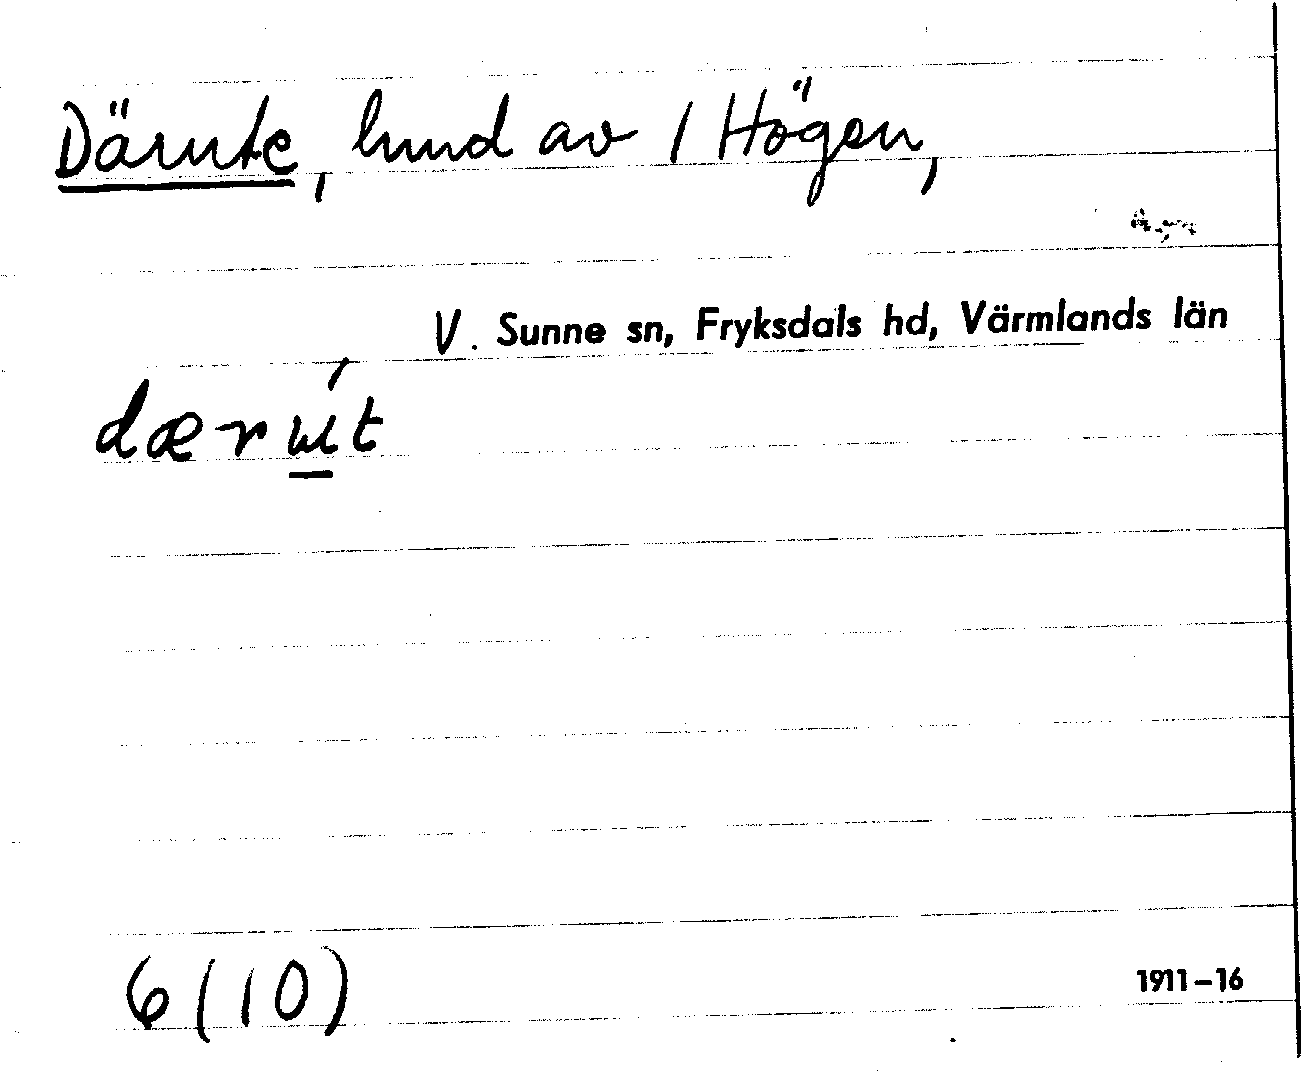 Därute, lund av 1 Högen,
V. Sunne sn, Fryksdals hd, Värmlands län
dærút
6(10)
1911-16